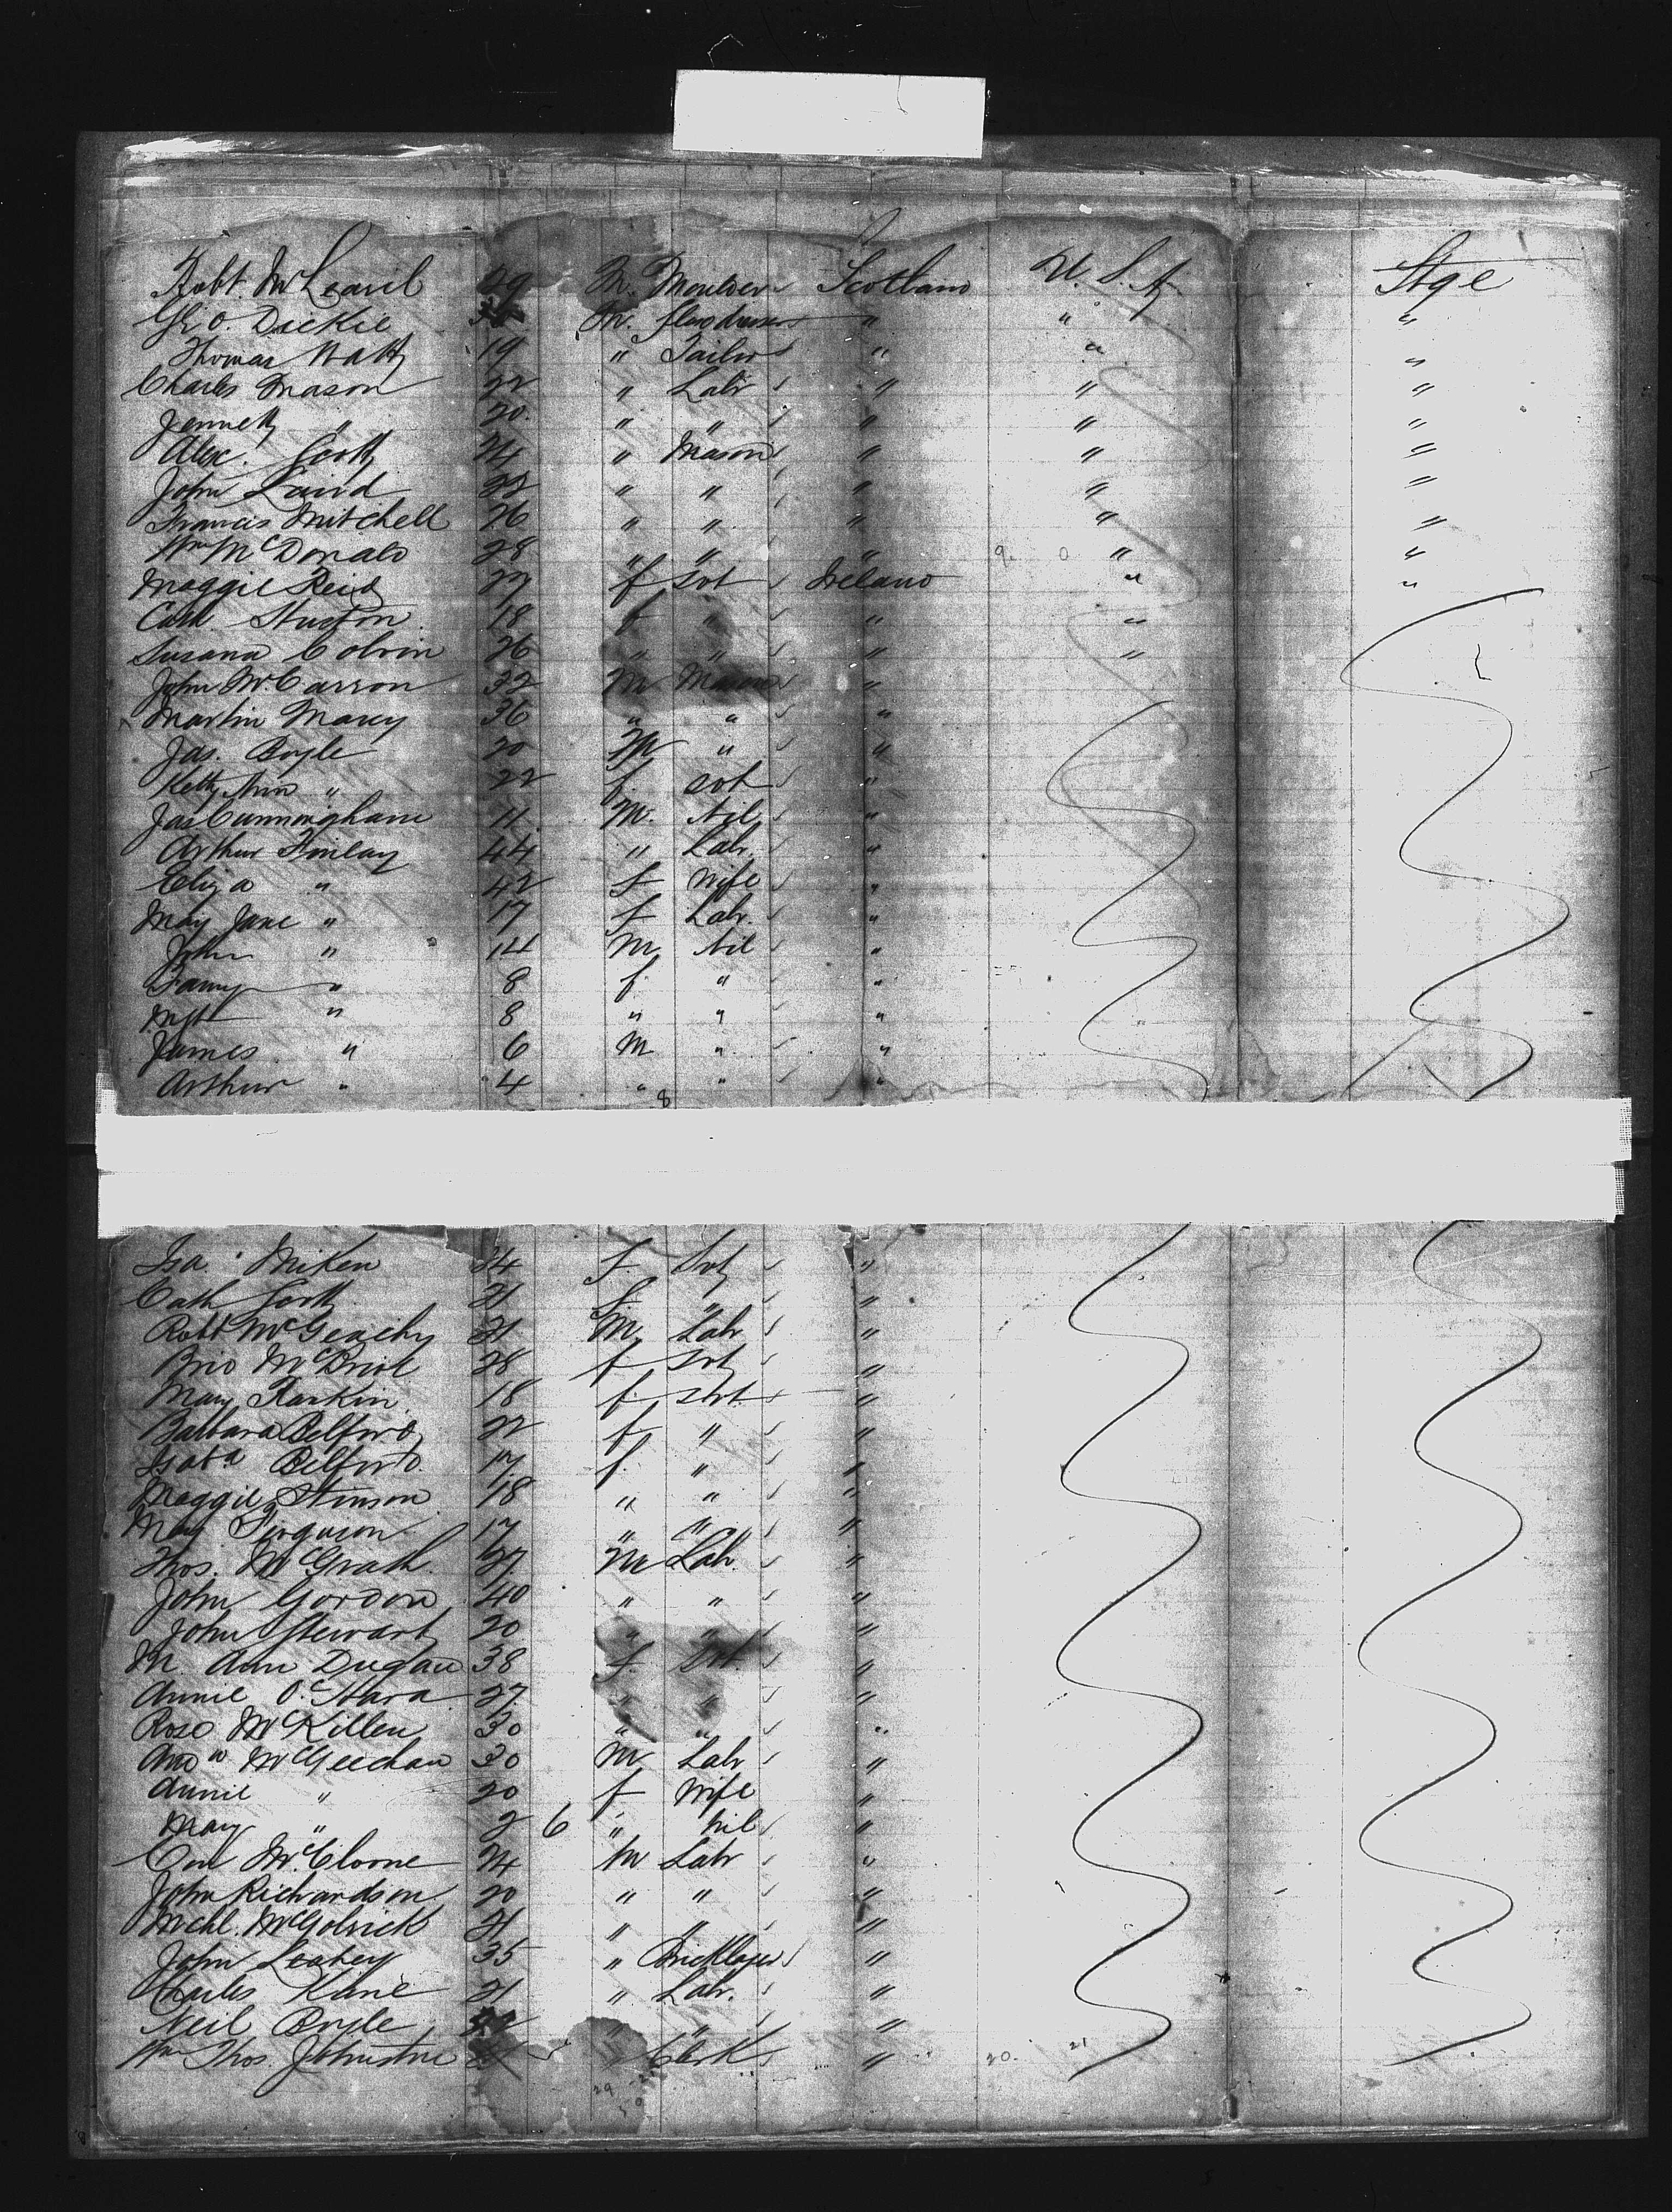 Robt. McLearil 49 M. Moulder Scotland U.S.A. Stge
Geo. Dickie M. " " "
Thomas Watt 19 " Tailor " " "
Charles Mason 22 " Labr " " "
Jennett " 20 " " " " "
Alex. Scott 24 " Mason " " "
John Laird 22 " " " " "
Francis Mitchell 26 " " " " "
Wm McDonald 28 " " " " "
Maggie Reid 27 f Svt Ireland " "
Cath 18 f " " "
Susana Colvin 26 " " " "
John McCarron 32 M Mason "
Martin Mary 36 " " "
Jas. Boyle 20 M " "
Kitty Ann " 22 f. svt "
Jas Cunningham 11 M. Nil "
Arthur Finlay 44 " Labr. "
Eliza " 42 f Wife "
May Jane " 17 f Labr. "
John " 14 M Nil "
Fanny " 8 f. " "
Mgt " 8 " " "
James " 6 M " "
Arthur " 4 " " "
8
Isa. Miken 24 f. Svt "
Cath Scott 21 f " "
Robt McGeachy 21 M Labr "
28 f Svt "
Mary Rankin 18 f. Svt "
Barbara Belford 22 f " "
Isaba Belford 17 f. " "
Maggie Stinson 18 " " "
May Ferguson 17 " " "
Thos. McGrath 27 M Labr. "
John Gordon 40 " " "
John Stewart 20 " " "
M. Ann Dugan 38 f. Svt. "
Annie O'Hara 27 " " "
Rose McKillen 30 " " "
Andw McGeechan 30 M Labr "
Annie " 20 f Wife "
May " 2 6 " Nil "
Con McCloone 24 M Labr "
John Richardson 20 " " "
Michl. McGolrick 21 " " "
John Leahey 35 " Bricklayer "
Charles Kane 21 " Labr. "
Neil Boyle " " "
Wm Thos. Johnstone 21 " Clerk "